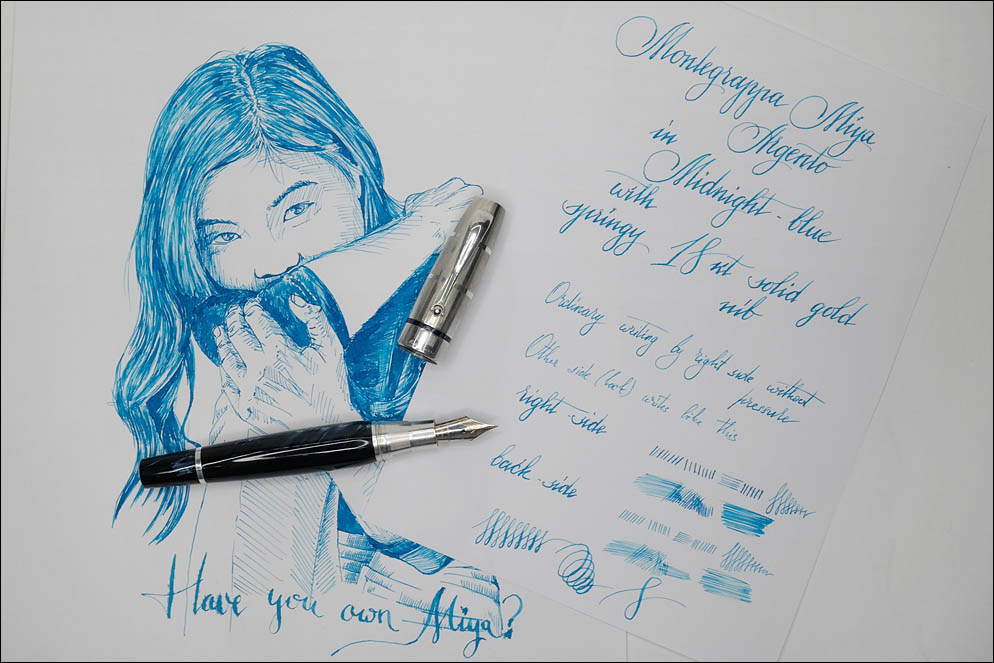 Montegrappa Miya
in Argento
Midnight-blue
with
springy 18 кт solid gold
nib
Ordinary writing by right side without
pressure
Other side (back) writes like this
right side
back-side
Have you own Miya?